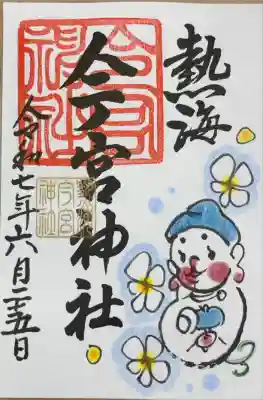 熱海
今宮神社
令和七年六月二五日
今宮
神社
今宮
神社